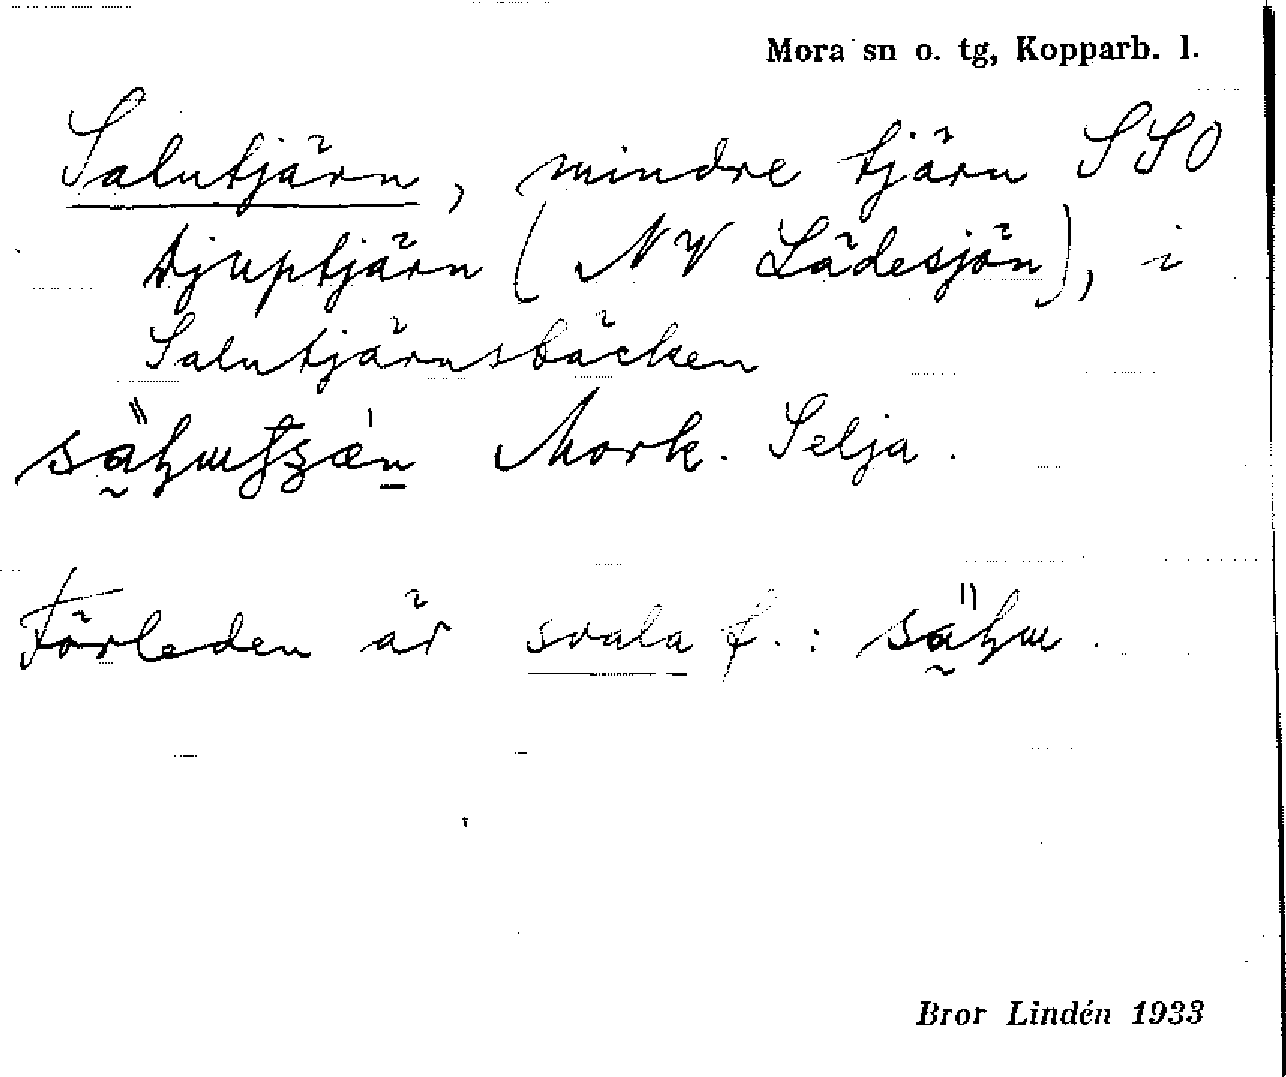 Mora sn o. tg, Kopparb. l.
Salutjärn, mindre tjärn SSO
Djuptjärn (NV Lädesjön), i
Salutjärnsbäcken
Mork. Selja.
Förleden är svala f.:
Bror Lindén 1933